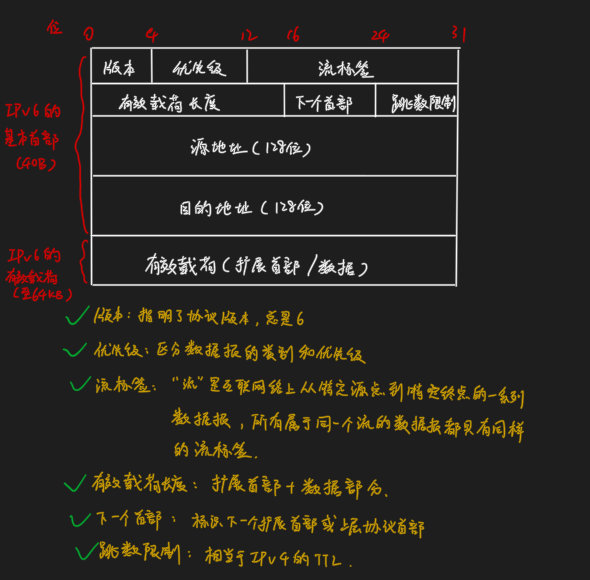 位 0 4 12 16 24 31
版本 优先级 流标签
有效载荷长度 下一个首部 跳数限制
IPv6的
基本首部
(40B)
源地址(128位)
目的地址(128位)
IPv6的
有效载荷
(至64KB)
有效载荷(扩展首部/数据)
版本:指明了协议版本,总是6
优先级:区分数据报的类别和优先级
流标签:“流”是互联网络上从特定源点到特定终点的一系列
数据报,所有属于同一个流的数据报都具有同样
的流标签.
有效载荷长度:扩展首部+数据部分.
下一个首部:标识下一个扩展首部或上层协议首部
跳数限制:相当于IPv4的TTL.